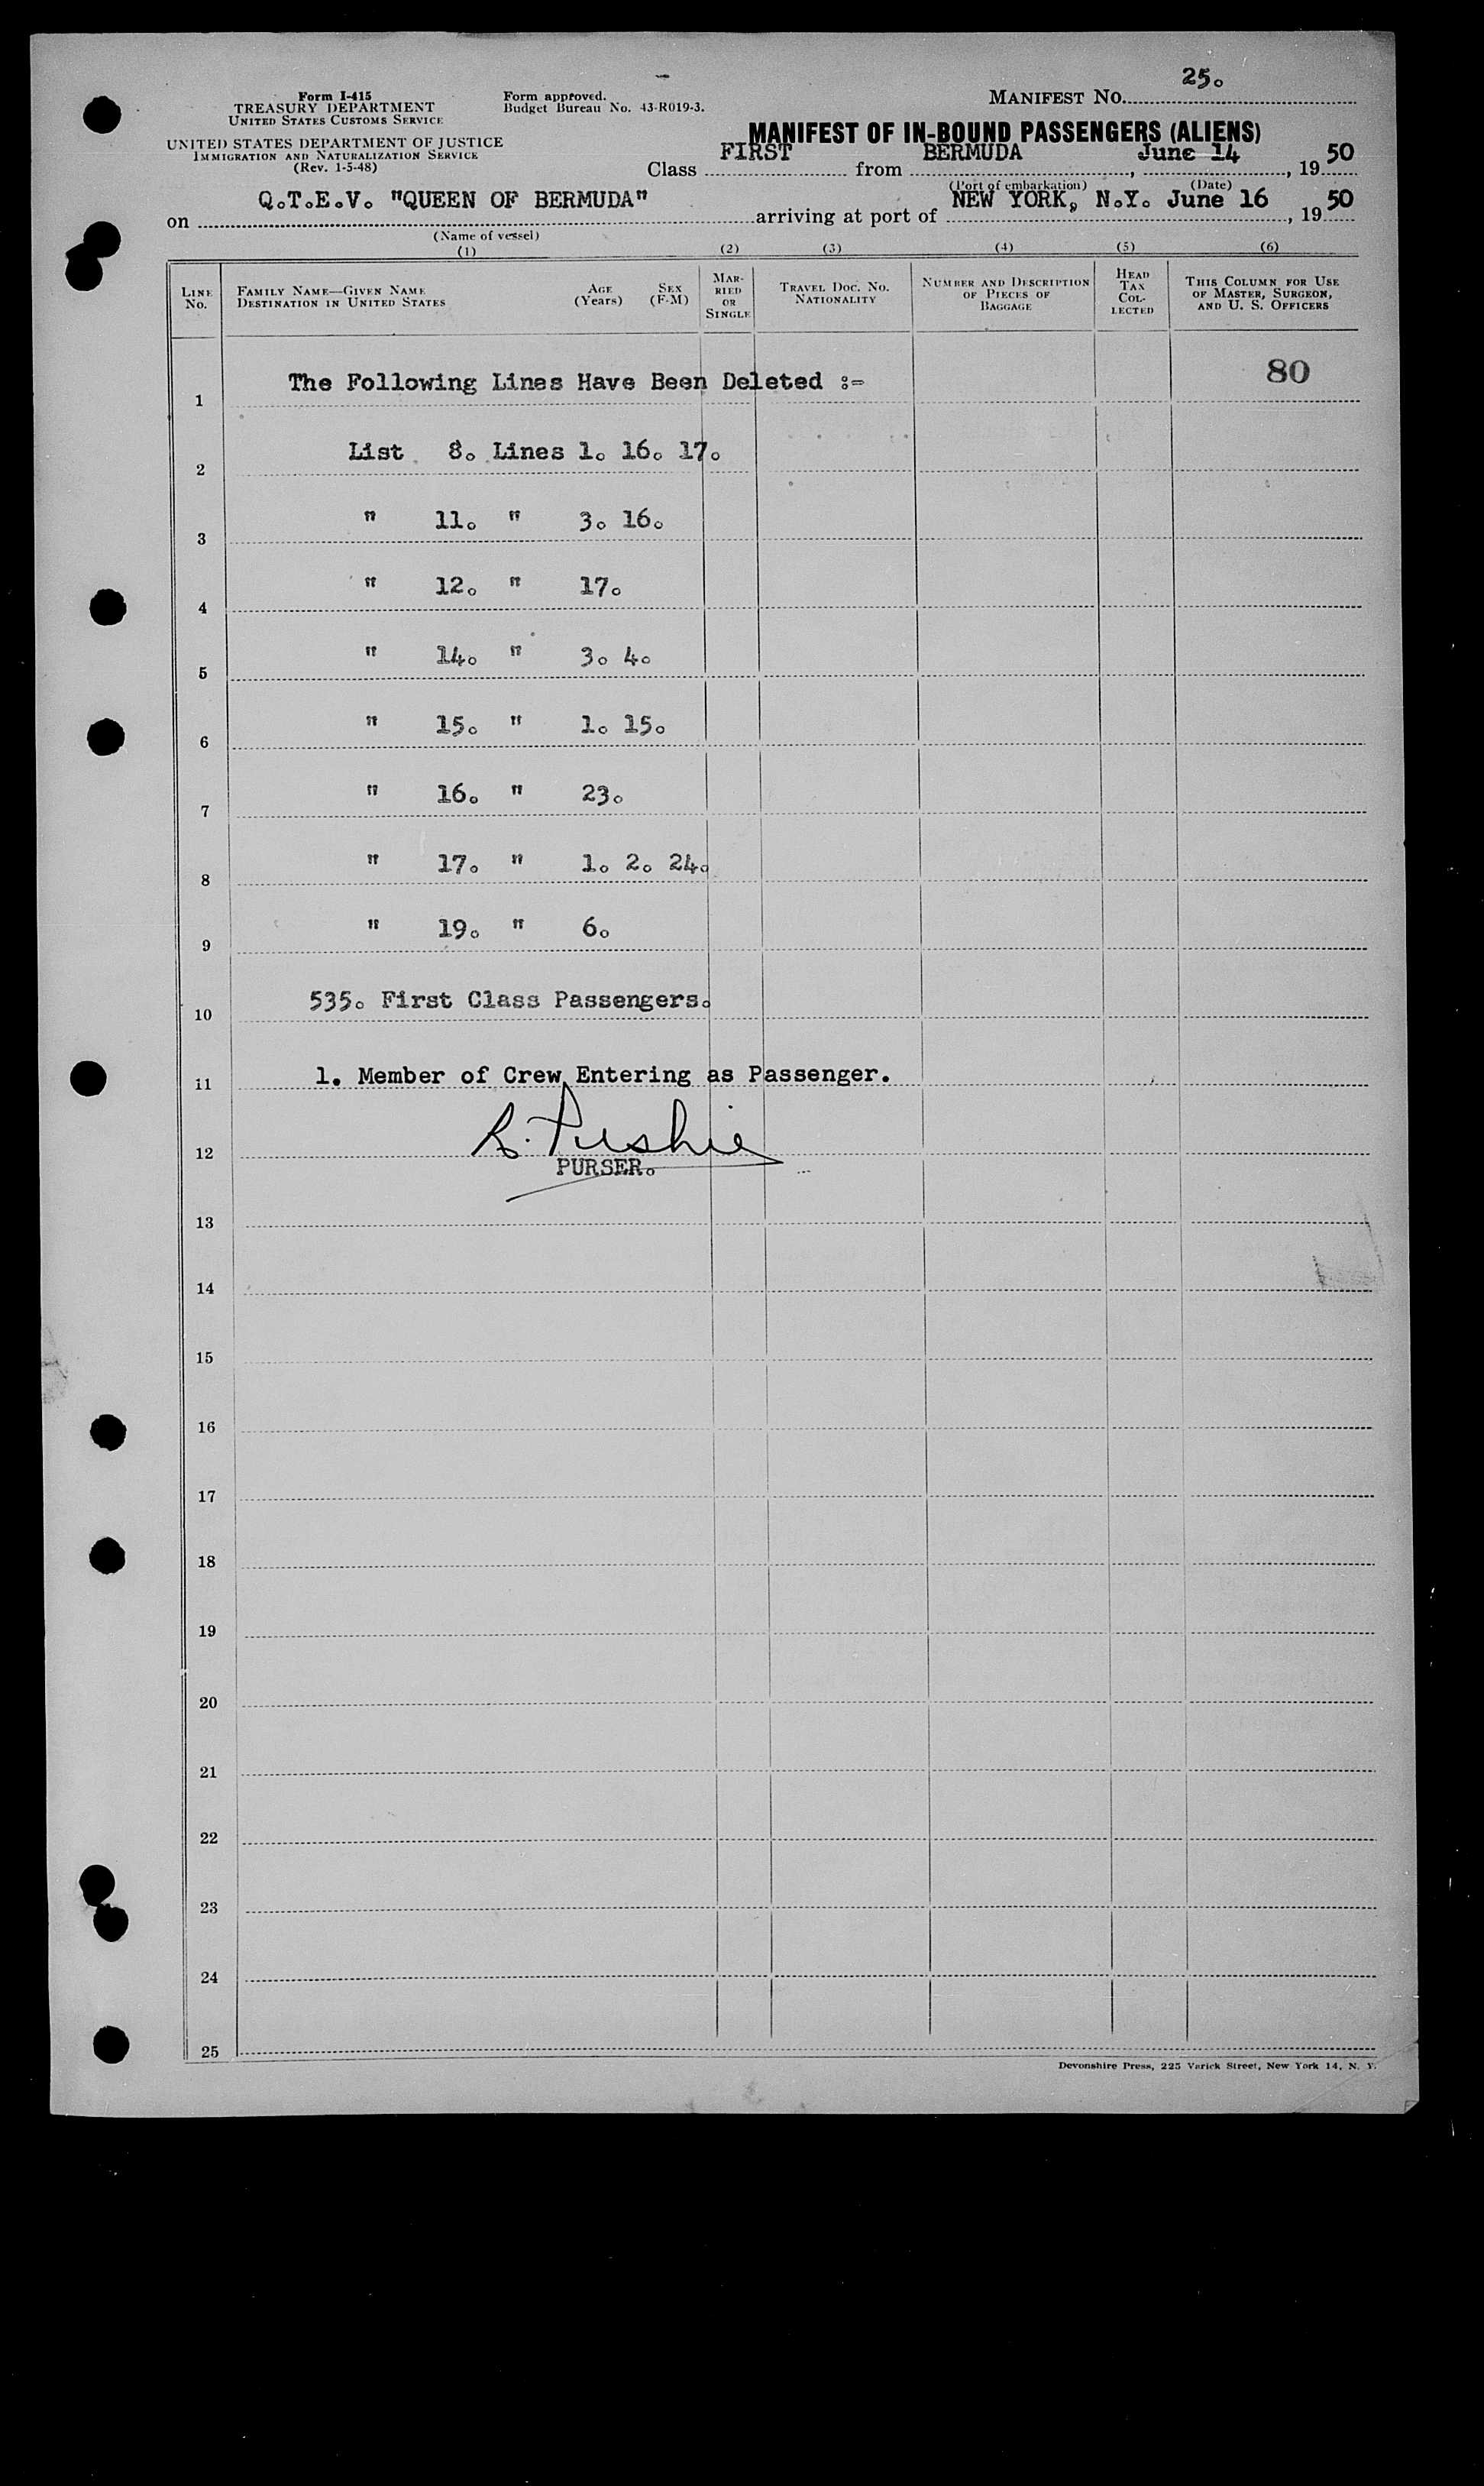 25.
Form I-415
TREASURY DEPARTMENT
UNITED STATES CUSTOMS SERVICE
Form approved.
Budget Bureau No. 43-R019-3.
MANIFEST No.
UNITED STATES DEPARTMENT OF JUSTICE
IMMIGRATION AND NATURALIZATION SERVICE
(Rev. 1-5-48)
MANIFEST OF IN-BOUND PASSENGERS (ALIENS)
Class FIRST from BERMUDA, June 14, 1950
(Port of embarkation) (Date)
on Q.T.E.V. "QUEEN OF BERMUDA" arriving at port of NEW YORK, N.Y. June 16, 1950
(Name of vessel)
(1) (2) (3) (4) (5) (6)
LINE No.
FAMILY NAME—GIVEN NAME
DESTINATION IN UNITED STATES
AGE (Years)
SEX (F-M)
MARRIED OR SINGLE
TRAVEL DOC. NO. NATIONALITY
NUMBER AND DESCRIPTION OF PIECES OF BAGGAGE
HEAD TAX COLLECTED
THIS COLUMN FOR USE OF MASTER, SURGEON, AND U. S. OFFICERS
1 The Following Lines Have Been Deleted :- 80
2 List 8. Lines 1. 16. 17.
3 " 11. " 3. 16.
4 " 12. " 17.
5 " 14. " 3. 4.
6 " 15. " 1. 15.
7 " 16. " 23.
8 " 17. " 1. 2. 24.
9 " 19. " 6.
10 535. First Class Passengers.
11 1. Member of Crew Entering as Passenger.
12
PURSER.
13
14
15
16
17
18
19
20
21
22
23
24
25
Devonshire Press, 225 Varick Street, New York 14, N. Y.